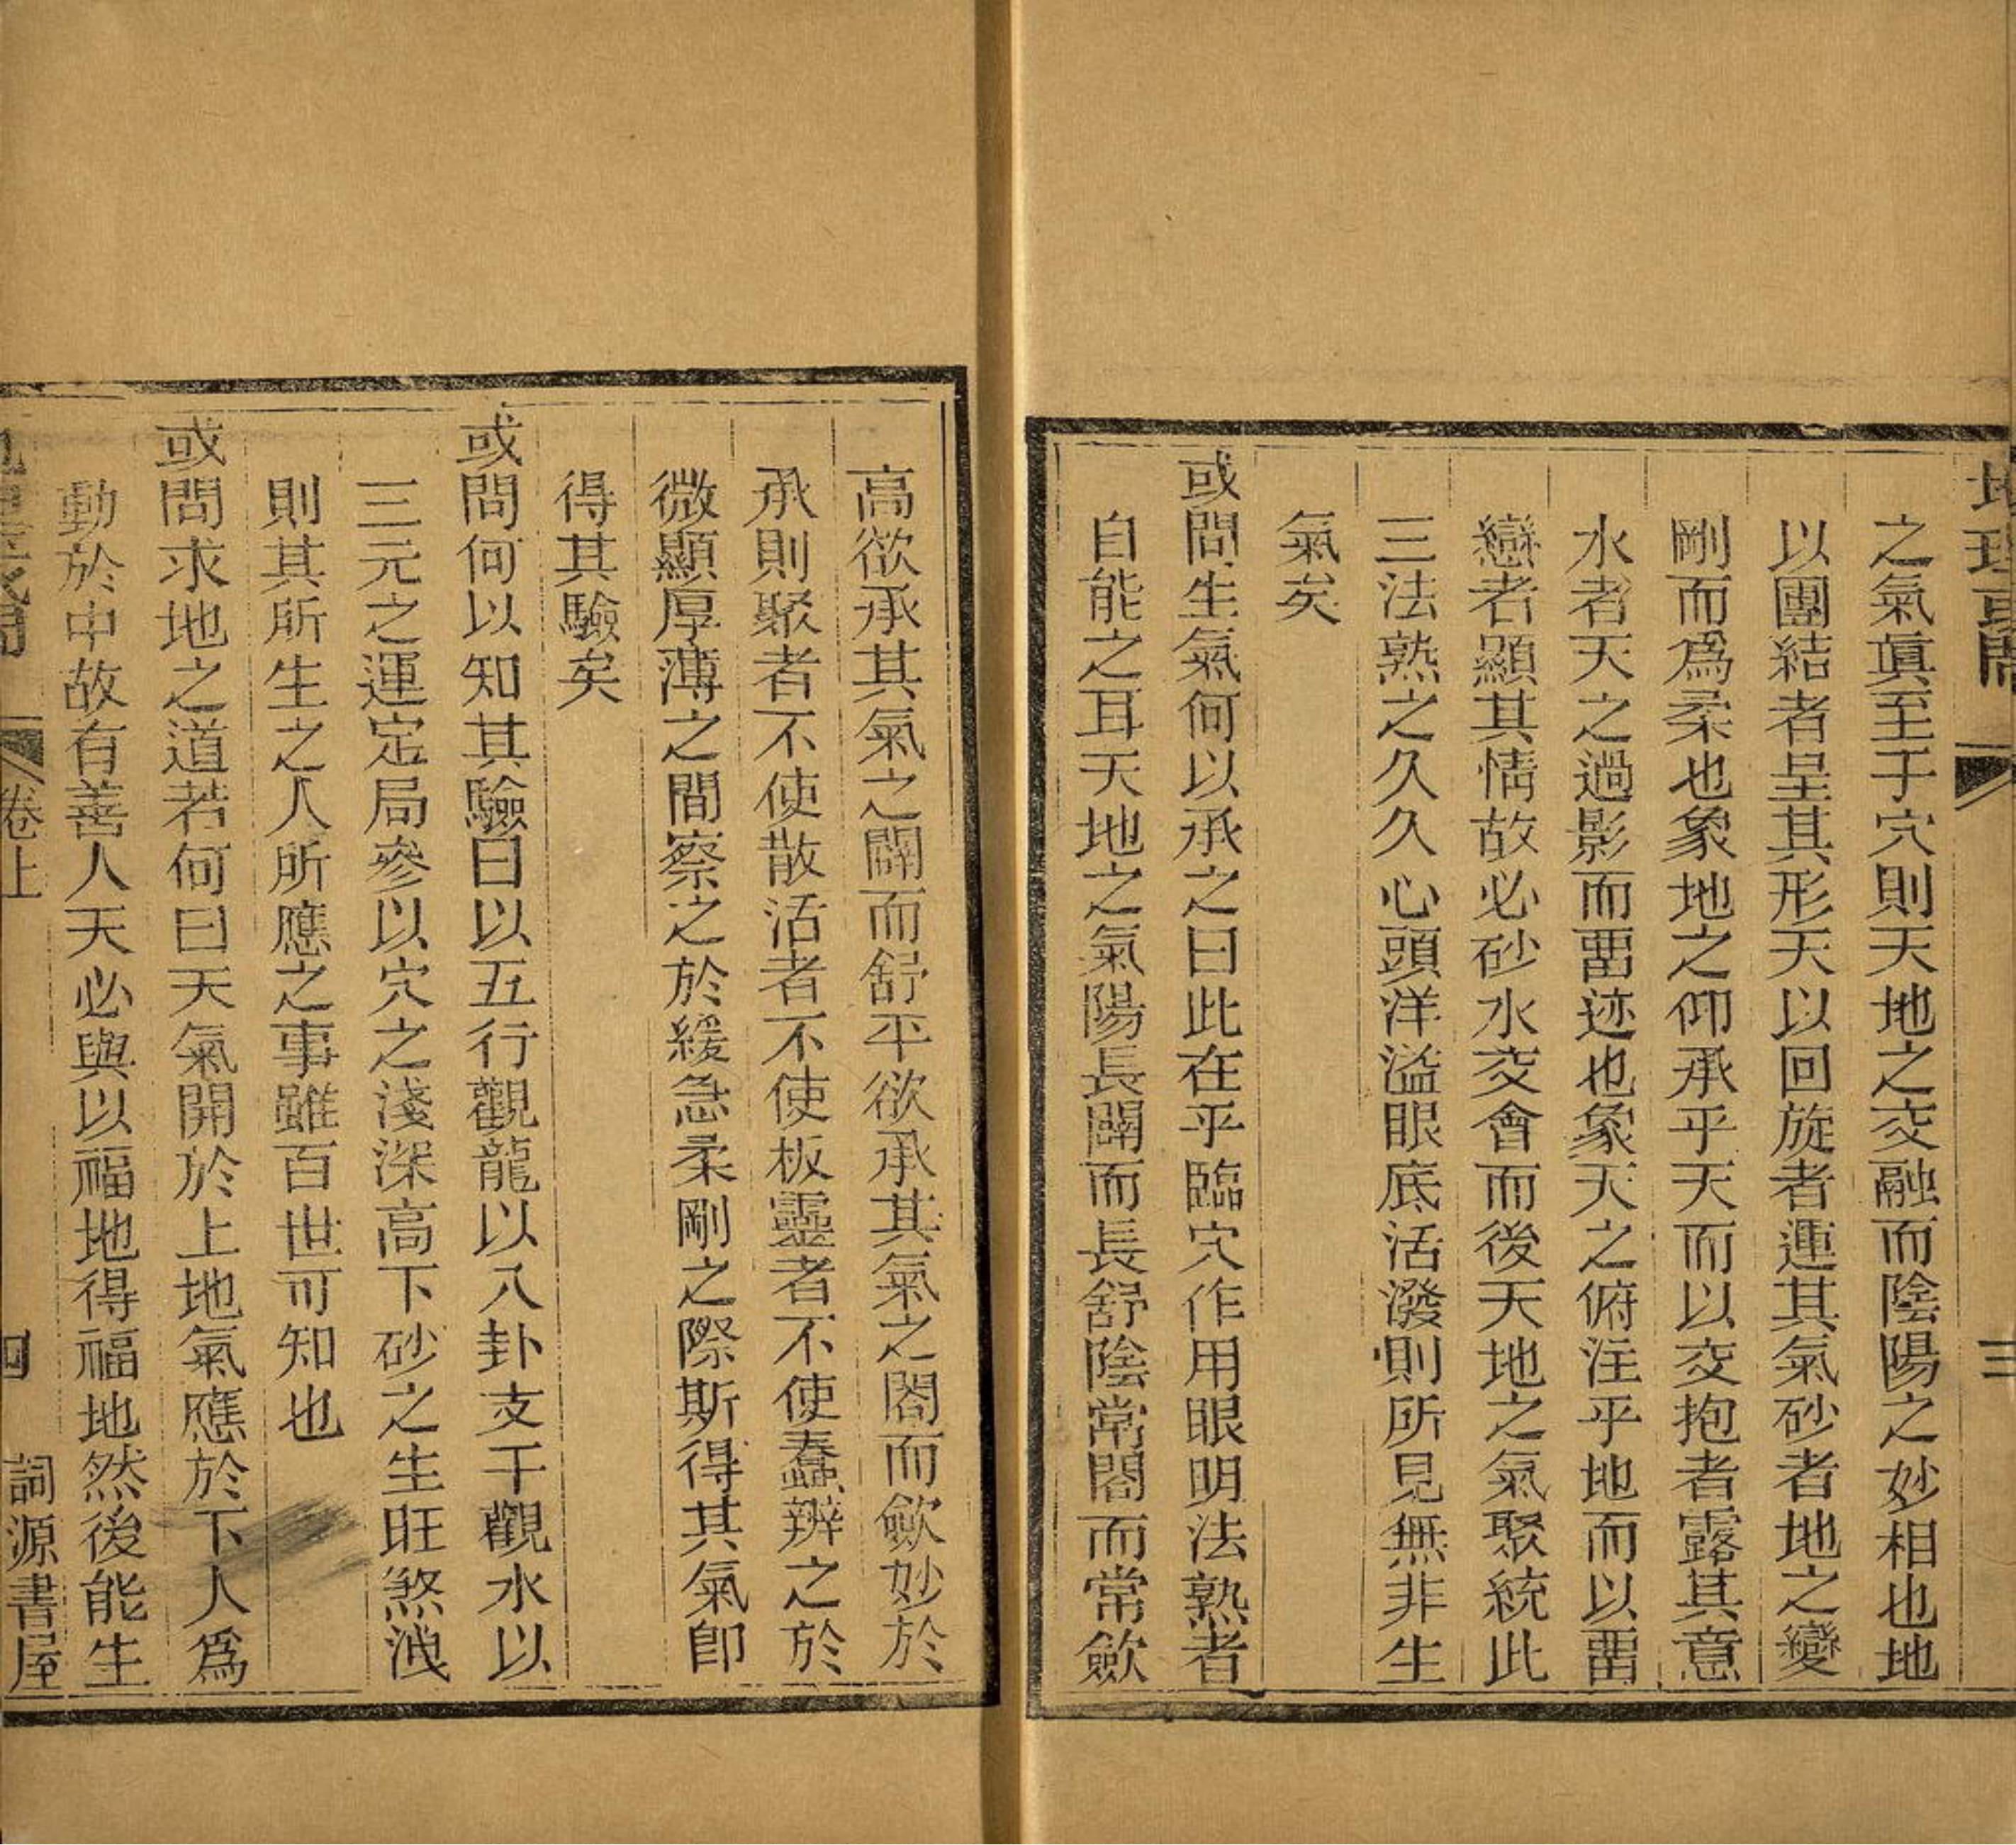 地理或問
三
之氣眞至于穴則天地之交融而陰陽之妙相也地
以團結者呈其形天以回旋者運其氣砂者地之變
剛而爲柔也象地之仰承乎天而以交抱者露其意
水者天之過影而畱迹也象天之俯注乎地而以畱
戀者顯其情故必砂水交會而後天地之氣聚統此
三法熟之久久心頭洋溢眼底活潑則所見無非生
氣矣
或問生氣何以承之曰此在乎臨穴作用眼明法熟者
自能之耳天地之氣陽長闢而長舒陰常閤而常歛
高欲承其氣之闢而舒平欲承其氣之閤而歛妙於
承則聚者不使散活者不使板靈者不使蠢辨之於
微顯厚薄之間察之於緩急柔剛之際斯得其氣卽
得其驗矣
或問何以知其驗曰以五行觀龍以八卦支干觀水以
三元之運定局參以穴之淺深高下砂之生旺煞洩
則其所生之人所應之事雖百世可知也
或問求地之道若何曰天氣開於上地氣應於下人爲
動於中故有善人天必與以福地得福地然後能生
卷上
四
詞源書屋